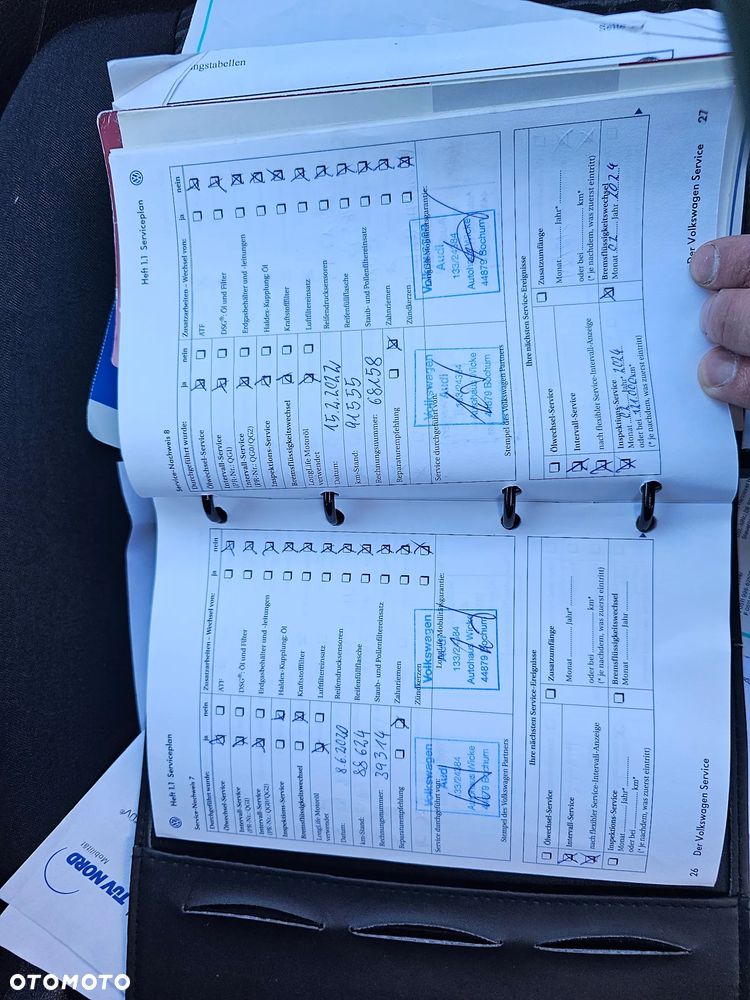 ngstabellen
Heft 1.1 Serviceplan
Service-Nachweis 7
Durchgeführt wurde: ja nein
Ölwechsel-Service
Intervall-Service
(PR-Nr.: QG1)
Intervall-Service
(PR-Nr.: QG0/QG2)
Inspektions-Service
Bremsflüssigkeitswechsel
LongLife Motoröl
verwendet
Datum: 8.6.2020
km-Stand: 88624
Rechnungsnummer: 39314
Reparaturempfehlung
Service durchgeführt von:
Volkswagen
Audi
133/24384
Autohaus Wicke
44879 Bochum
Stempel des Volkswagen Partners
Zusatzarbeiten – Wechsel von: ja nein
ATF
DSG®: Öl und Filter
Erdgasbehälter und -leitungen
Haldex-Kupplung: Öl
Kraftstofffilter
Luftfiltereinsatz
Reifendrucksensoren
Reifenfüllflasche
Staub- und Pollenfiltereinsatz
Zahnriemen
Zündkerzen
LongLife Mobilitätsgarantie:
Volkswagen
Audi
133/24384
Autohaus Wicke
44879 Bochum
Ihre nächsten Service-Ereignisse
Ölwechsel-Service
Intervall-Service
nach flexibler Service-Intervall-Anzeige
Inspektions-Service
Monat Jahr*
oder bei km*
(* je nachdem, was zuerst eintritt)
Zusatzumfänge
Monat Jahr*
oder bei km*
(* je nachdem, was zuerst eintritt)
Bremsflüssigkeitswechsel
Monat Jahr
26 Der Volkswagen Service
Heft 1.1 Serviceplan
Service-Nachweis 8
Durchgeführt wurde: ja nein
Ölwechsel-Service
Intervall-Service
(PR-Nr.: QG1)
Intervall-Service
(PR-Nr.: QG0/QG2)
Inspektions-Service
Bremsflüssigkeitswechsel
LongLife Motoröl
verwendet
Datum: 15.2.2022
km-Stand: 91555
Rechnungsnummer: 68158
Reparaturempfehlung
Service durchgeführt von:
Volkswagen
Audi
133/24384
Autohaus Wicke
44879 Bochum
Stempel des Volkswagen Partners
Zusatzarbeiten – Wechsel von: ja nein
ATF
DSG®: Öl und Filter
Erdgasbehälter und -leitungen
Haldex-Kupplung: Öl
Kraftstofffilter
Luftfiltereinsatz
Reifendrucksensoren
Reifenfüllflasche
Staub- und Pollenfiltereinsatz
Zahnriemen
Zündkerzen
LongLife Mobilitätsgarantie:
Volkswagen
Audi
133/24384
Autohaus Wicke
44879 Bochum
Ihre nächsten Service-Ereignisse
Ölwechsel-Service
Intervall-Service
nach flexibler Service-Intervall-Anzeige
Inspektions-Service
Monat 02 Jahr* 2024
oder bei 121000 km*
(* je nachdem, was zuerst eintritt)
Zusatzumfänge
Monat Jahr*
oder bei km*
(* je nachdem, was zuerst eintritt)
Bremsflüssigkeitswechsel
Monat 02 Jahr 2024
Der Volkswagen Service 27
TÜV NORD
Mobilität
OTOMOTO